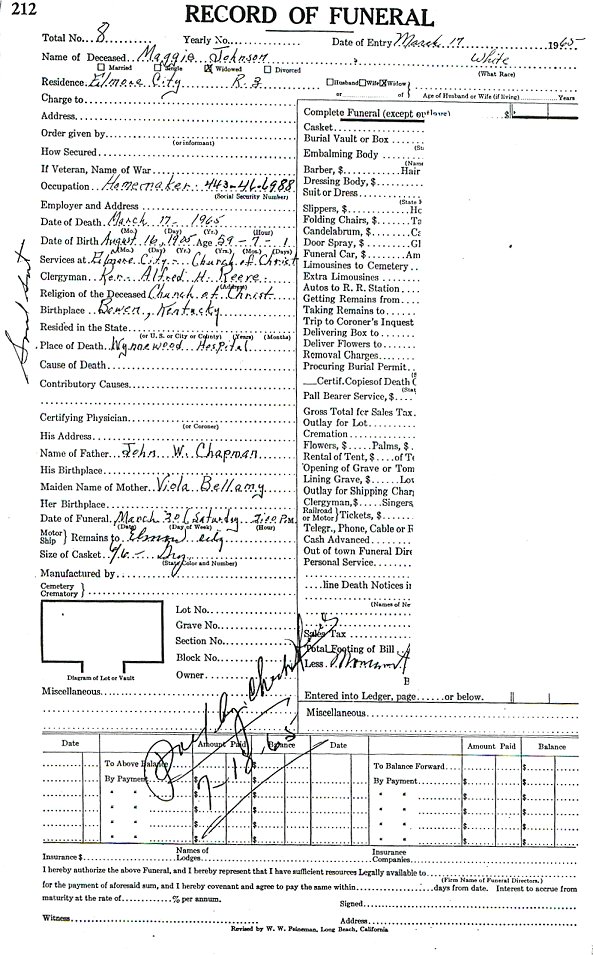 212
RECORD OF FUNERAL
Total No. 8 Yearly No. Date of Entry March 17 1965
Name of Deceased Maggie Johnson White
Married Single Widowed Divorced (What Race)
Residence Elmore City R. 3 Husband Wife Widow or of Age of Husband or Wife (if living) Years
Charge to
Address
Order given by
(or informant)
How Secured
If Veteran, Name of War
Occupation Homemaker 443-46-6988
(Social Security Number)
Employer and Address
Date of Death March 17 - 1965
(Mo.) (Day) (Yr.) (Hour)
Date of Birth August 16, 1905 Age 59 - 7 - 1
(Mo.) (Day) (Yr.) (Yrs.) (Mos.) (Days)
Services at Elmore City - Church of Christ
Clergyman Rev. Alfred H. Reeve
(Address)
Religion of the Deceased Church of Christ
Birthplace Bowen, Kentucky
Resided in the State
(or U. S. City or County) (Years) (Months)
Place of Death Wynnewood Hospital
Cause of Death
Contributory Causes
Certifying Physician
(or Coroner)
His Address
Name of Father John W. Chapman
His Birthplace
Maiden Name of Mother Viola Bellamy
Her Birthplace
Date of Funeral March 20 Saturday 2:00 P.M.
(Date) (Day of Week) (Hour)
Motor Ship Remains to Elmore City
Size of Casket 6/6 -
(State Color and Number)
Manufactured by
Cemetery Crematory
Lot No.
Grave No.
Section No.
Block No.
Owner
Diagram of Lot or Vault
Miscellaneous
Complete Funeral (except outlays) $
Casket
Burial Vault or Box
(St
Embalming Body
(Name
Barber, $ Hair
Dressing Body, $
Suit or Dress
(State S
Slippers, $ Ho
Folding Chairs, $ Ta
Candelabrum, $ Ca
Door Spray, $ Gl
Funeral Car, $ Am
Limousines to Cemetery
Extra Limousines
Autos to R. R. Station
Getting Remains from
Taking Remains to
Trip to Coroner's Inquest
Delivering Box to
Deliver Flowers to
Removal Charges
Procuring Burial Permit
Certif. Copies of Death C
(Stat
Pall Bearer Service, $
Gross Total for Sales Tax
Outlay for Lot
Cremation
Flowers, $ Palms, $
Rental of Tent, $ of Te
Opening of Grave or Tom
Lining Grave, $ Lov
Outlay for Shipping Char
Clergyman, $ Singers,
Railroad or Motor Tickets, $
Telegr., Phone, Cable or R
Cash Advanced
Out of town Funeral Dire
Personal Service
line Death Notices i
(Names of Ne
Sales Tax
Total Footing of Bill
Less
B
Entered into Ledger, page or below.
Miscellaneous
Paid by Check
7-18-65
Date Amount Paid Balance Date Amount Paid Balance
To Above Balance $ To Balance Forward $
By Payment $ $ By Payment $ $
" " $ $ " " $ $
" " $ $ " " $ $
" " $ $ " " $ $
" " $ $ " " $ $
Insurance $ Names of Lodges Insurance Companies
I hereby authorize the above Funeral, and I hereby represent that I have sufficient resources Legally available to
(Firm Name of Funeral Directors.)
for the payment of aforesaid sum, and I hereby covenant and agree to pay the same within days from date. Interest to accrue from
maturity at the rate of % per annum. Signed
Witness Address
Revised by W. W. Peineman, Long Beach, California